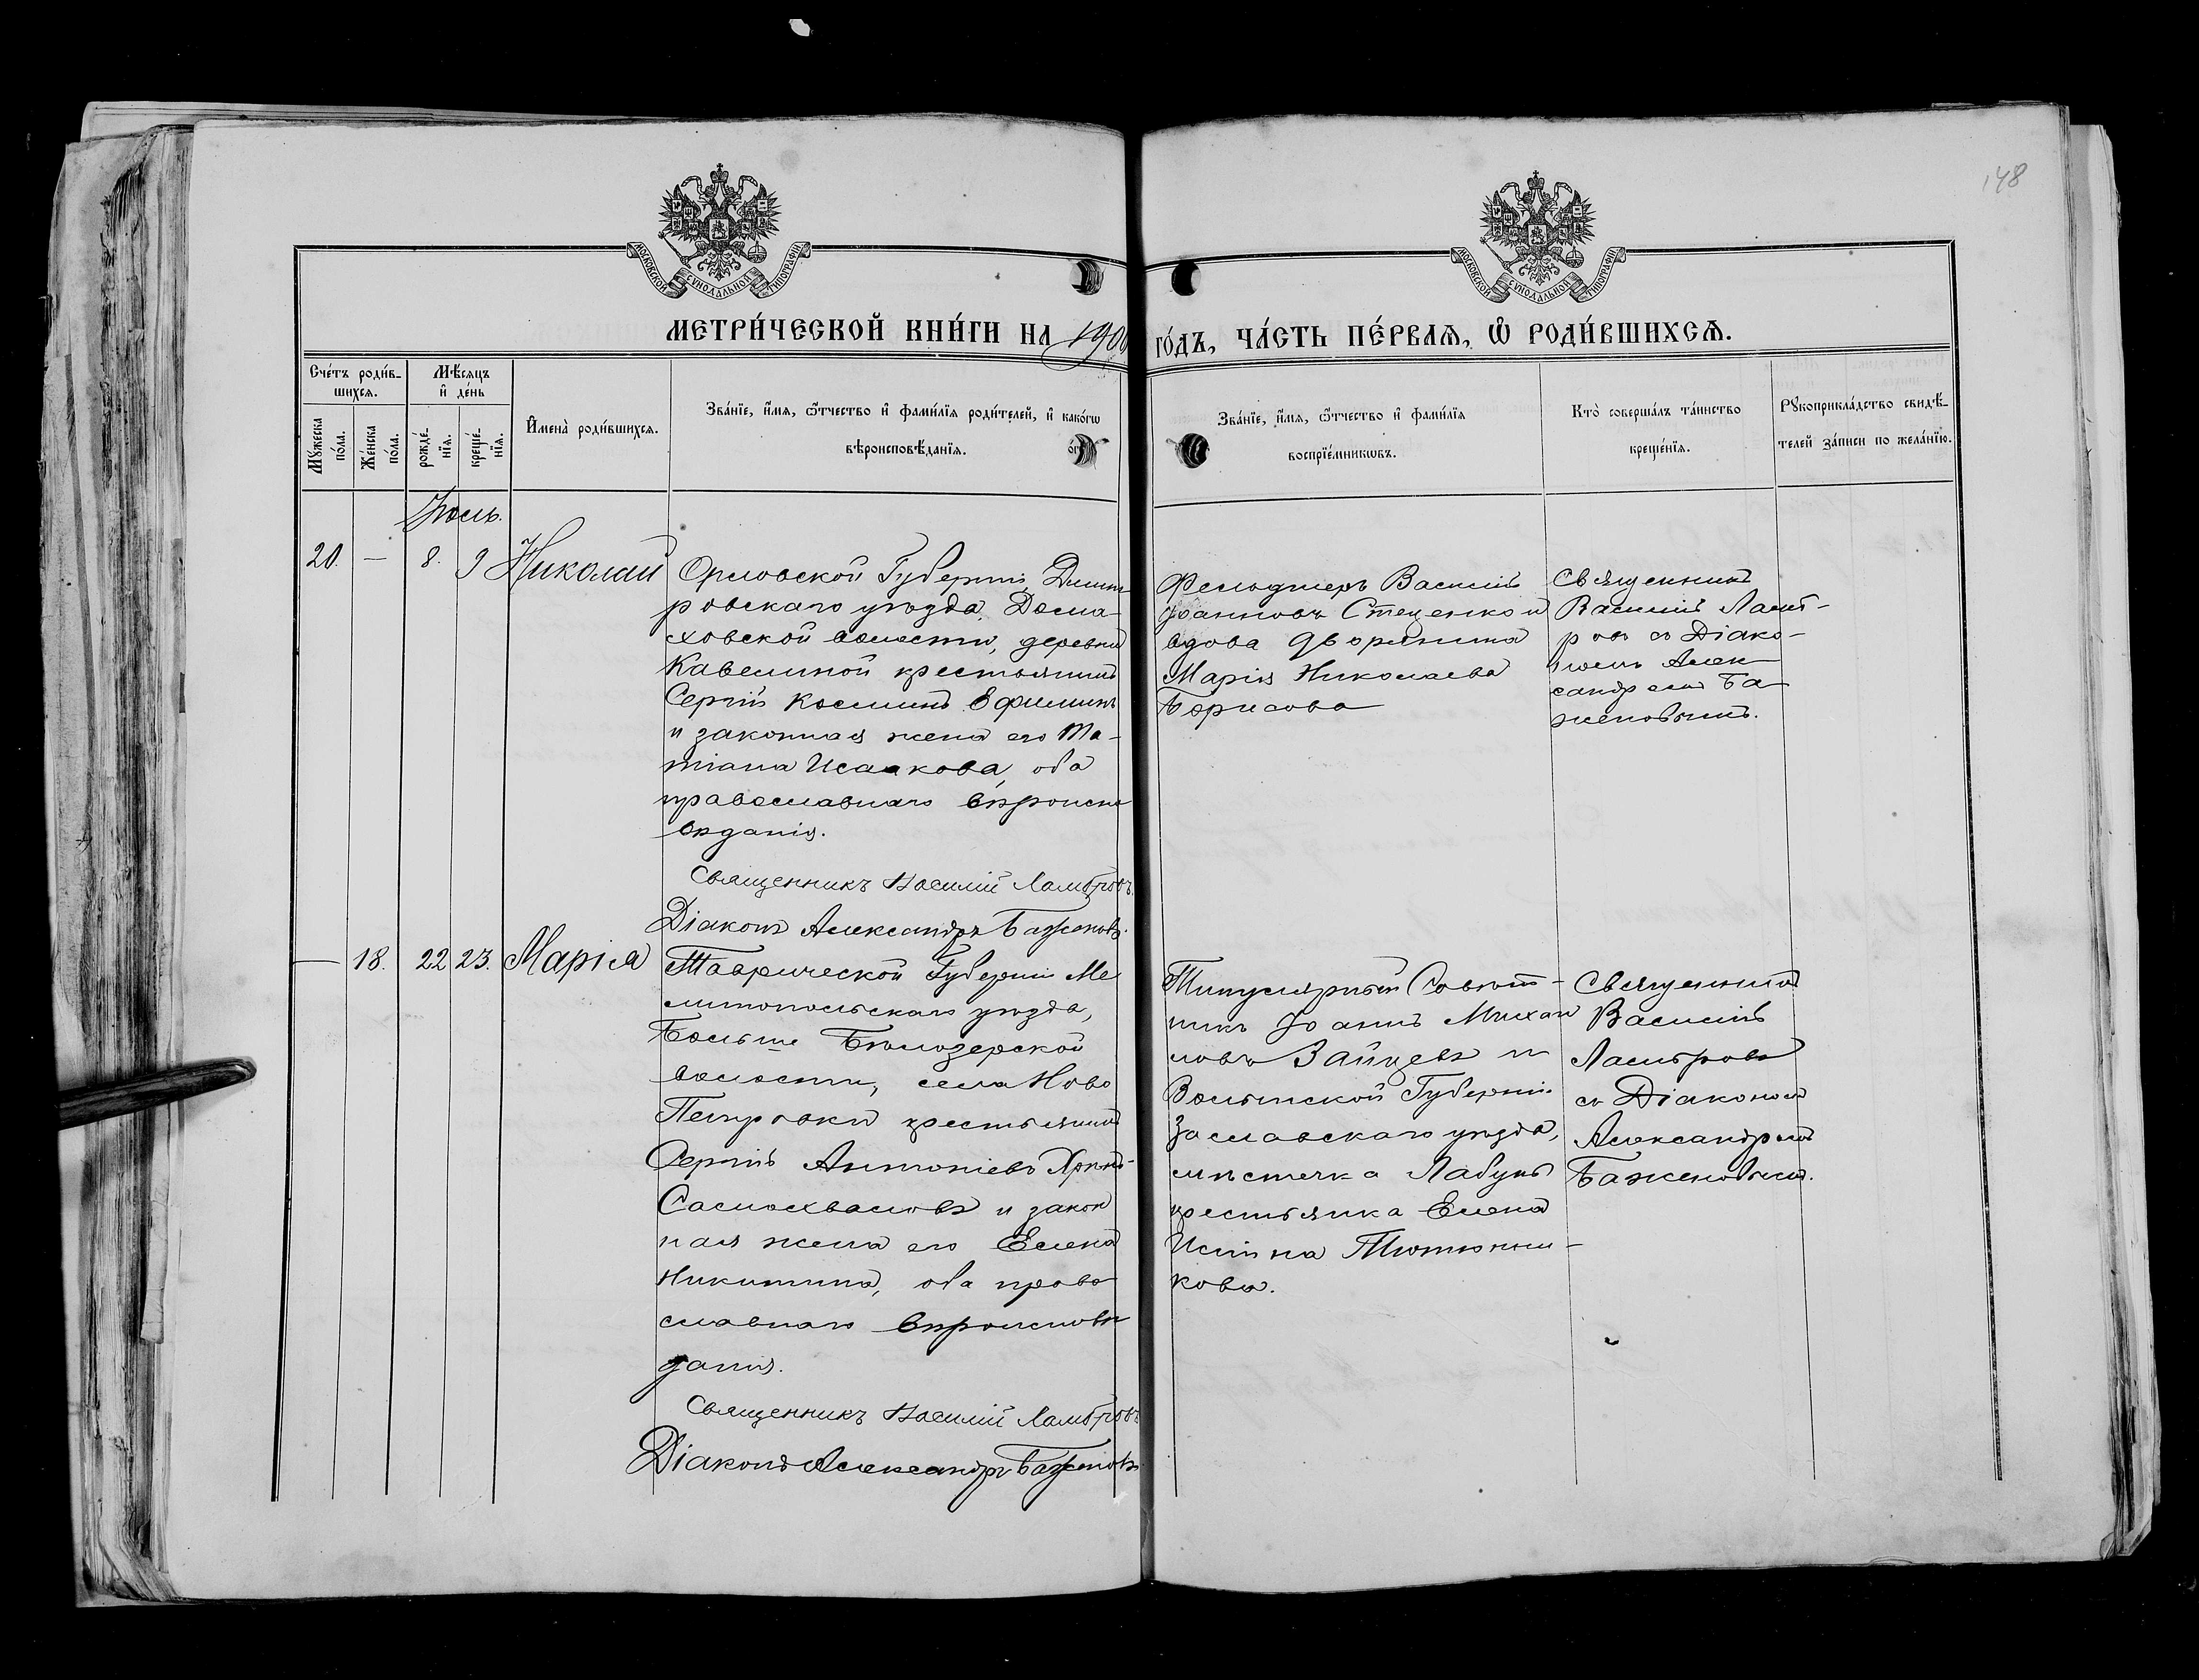 148
МОСКОВСКОЙ СѴНОДАЛЬНОЙ ТИПОГРАФІИ
МОСКОВСКОЙ СѴНОДАЛЬНОЙ ТИПОГРАФІИ
МЕТРИ́ЧЕСКОЙ КНИ́ГИ НА 1900 ГО́ДЪ, ЧА́СТЬ ПЕ́РВАЯ, Ѽ РОДИ́ВШИХСѦ.
Сче́тъ роди́в-
шихсѧ.
Мꙋ́жеска по́ла.
Же́нска по́ла.
Мѣ́сѧцъ
и҆ де́нь
рожде́-нїѧ.
креще́-нїѧ.
И҆мена̀ роди́вшихсѧ.
Зва́нїе, и҆́мѧ, ѻ҆́тчество и҆ фами́лїѧ роди́телей, и҆ како́гѡ
вѣроисповѣ́данїѧ.
Зва́нїе, и҆́мѧ, ѻ҆́тчество и҆ фами́лїѧ
воспрїе́мникѡвъ.
Кто̀ соверша́лъ та́инство
креще́нїѧ.
Рꙋкоприкла́дство свидѣ́-
телей за́писи по жела́нїю.
Іюль.
20. — 8. 9 Николай
Орловской Губерніи, Дмит
ровскаго уѣзда, Дома-
ховской волости, деревни
Кавелиной крестьянинъ
Сергій Косминъ Ефиминъ
и законная жена его Та-
тіана Исаакова, оба
православнаго вѣроиспо
вѣданія.
Священникъ Василій Ламбровъ.
Діаконъ Александръ Баженовъ.
Фельдшеръ Василій
Іоанновъ Стеценко и
вдова дворянина
Марія Николаева
Борисова
Священникъ
Василій Ламб-
ровъ съ Діако-
номъ Алек
сандромъ Ба-
женовымъ.
— 18. 22 23. Марія
Таврической Губерніи Ме
литопольскаго уѣзда,
Больше Бѣлозерской
волости, села Ново
Петровки крестьянинъ
Сергій Антоніевъ
Самохваловъ и закон
ная жена его Елена
Никитина, оба право
славнаго вѣроисповѣ
данія.
Священникъ Василій Ламбровъ
Діаконъ Александръ Баженовъ.
Титулярный Совѣт-
никъ Іоаннъ Михаи
ловъ Зайцевъ и
Волынской Губерніи
Заславскаго уѣзда,
мѣстечка Лабунь
крестьянка Елена
Тютюнни-
кова.
Священникъ
Василій
Ламбровъ
съ Діакономъ
Александромъ
Баженовымъ.